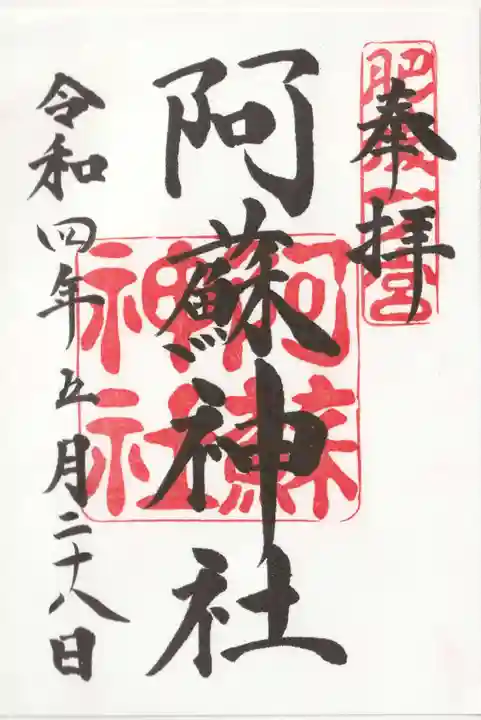 奉拝
肥後一宮
阿蘇神社
阿蘇神社
令和四年五月二十八日